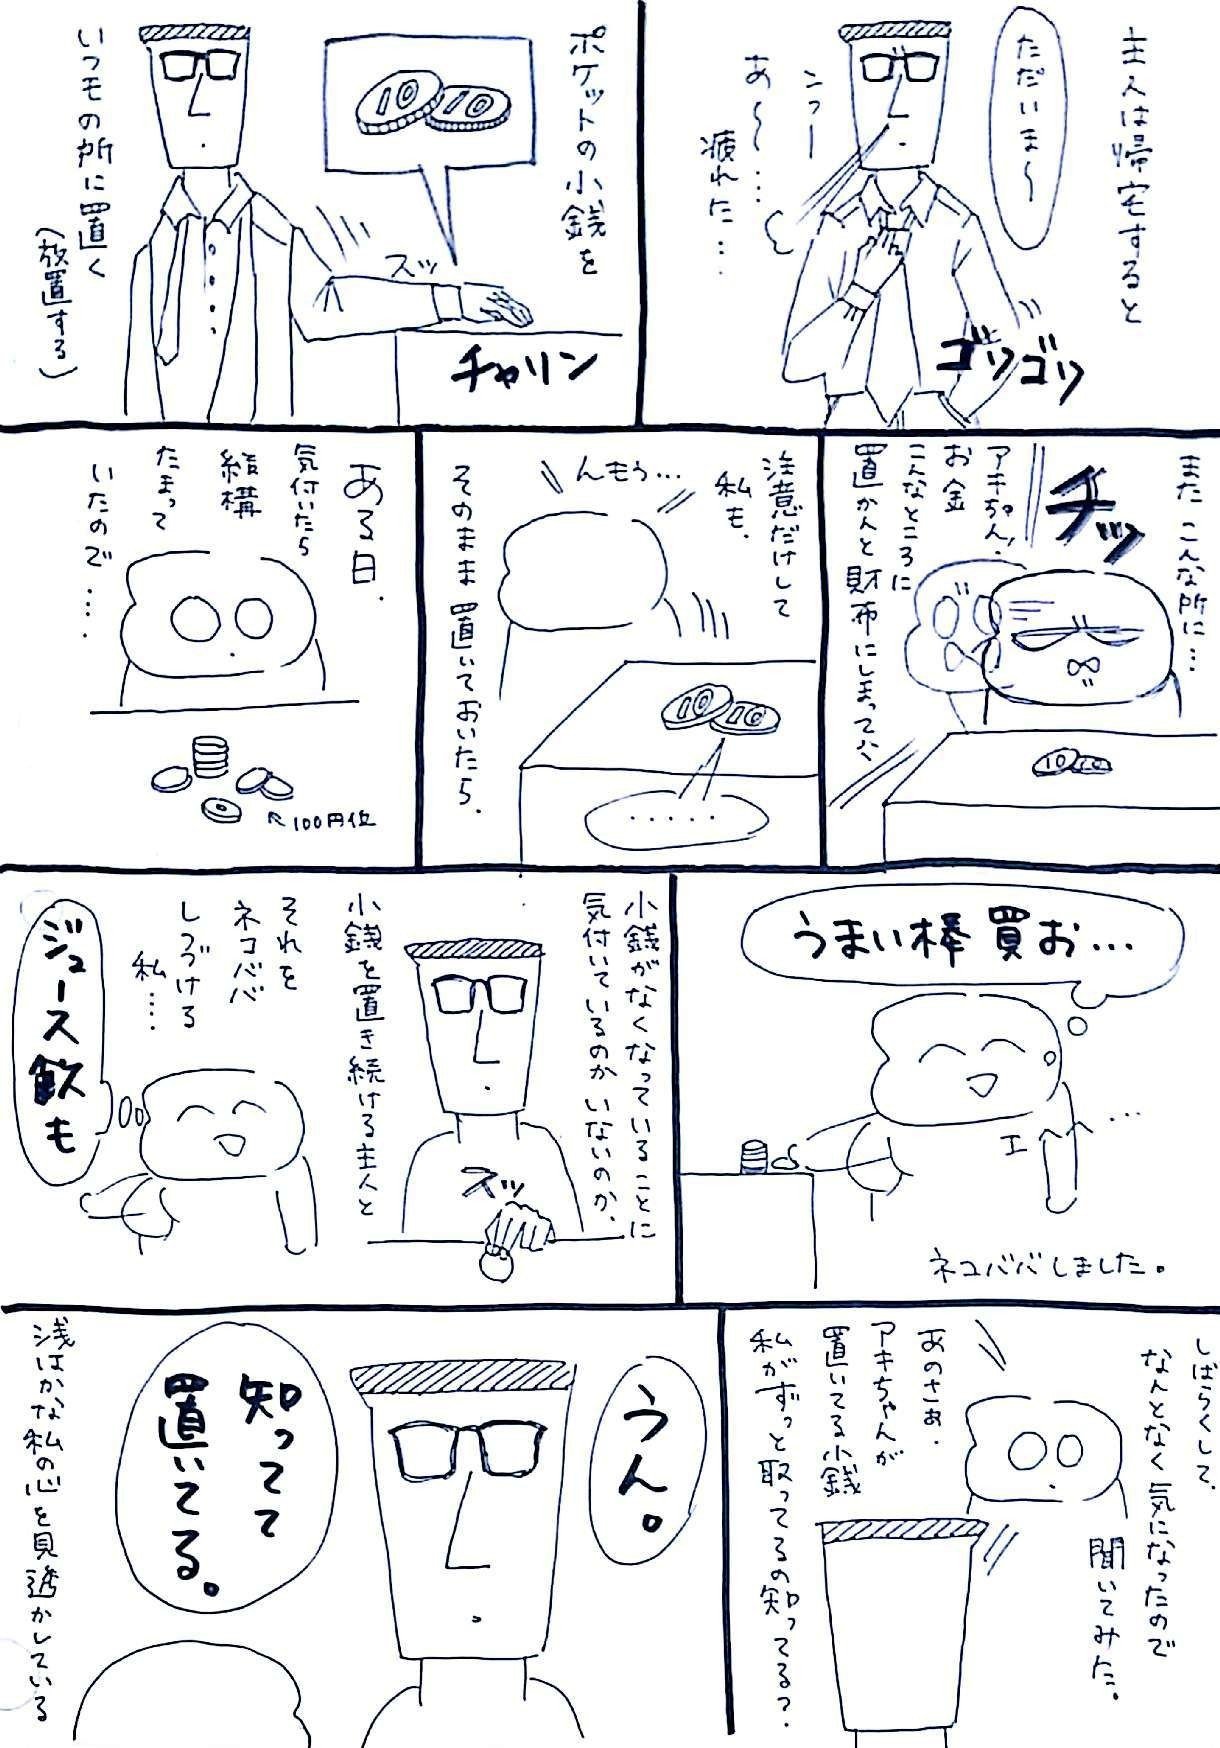 主人は帰宅すると
ただいま〜
ンっー
あ〜〜…
疲れた…
ゴソゴソ
ポケットの小銭を
10 10
スッ
チャリン
いつモの所に置く
(放置する)
また こんな所に…
チッ
アキちゃん!
お金
こんなところに
置かんと財布にしまって
10 10
注意だけして
私も、
んもぅ…
10 10
・・・・・
そのまま 置いておいたら、
ある日、
気付いたら
結構
たまって
いたので…
100円位
うまい棒 買お…
エヘヘ…
ネコババしました。
小銭がなくなっていることに
気付いているのか いないのか、
スッ
小銭を置き続ける主人と
それを
ネコババ
しつづける
私…
ジュース飲も
しばらくして、
なんとなく気になったので
聞いてみた。
あのさぁ、
アキちゃんが
置いてる小銭
私がずっと取ってるの知ってる?
うん。
知ってて
置いてる。
浅はかな私の心を見透かしている